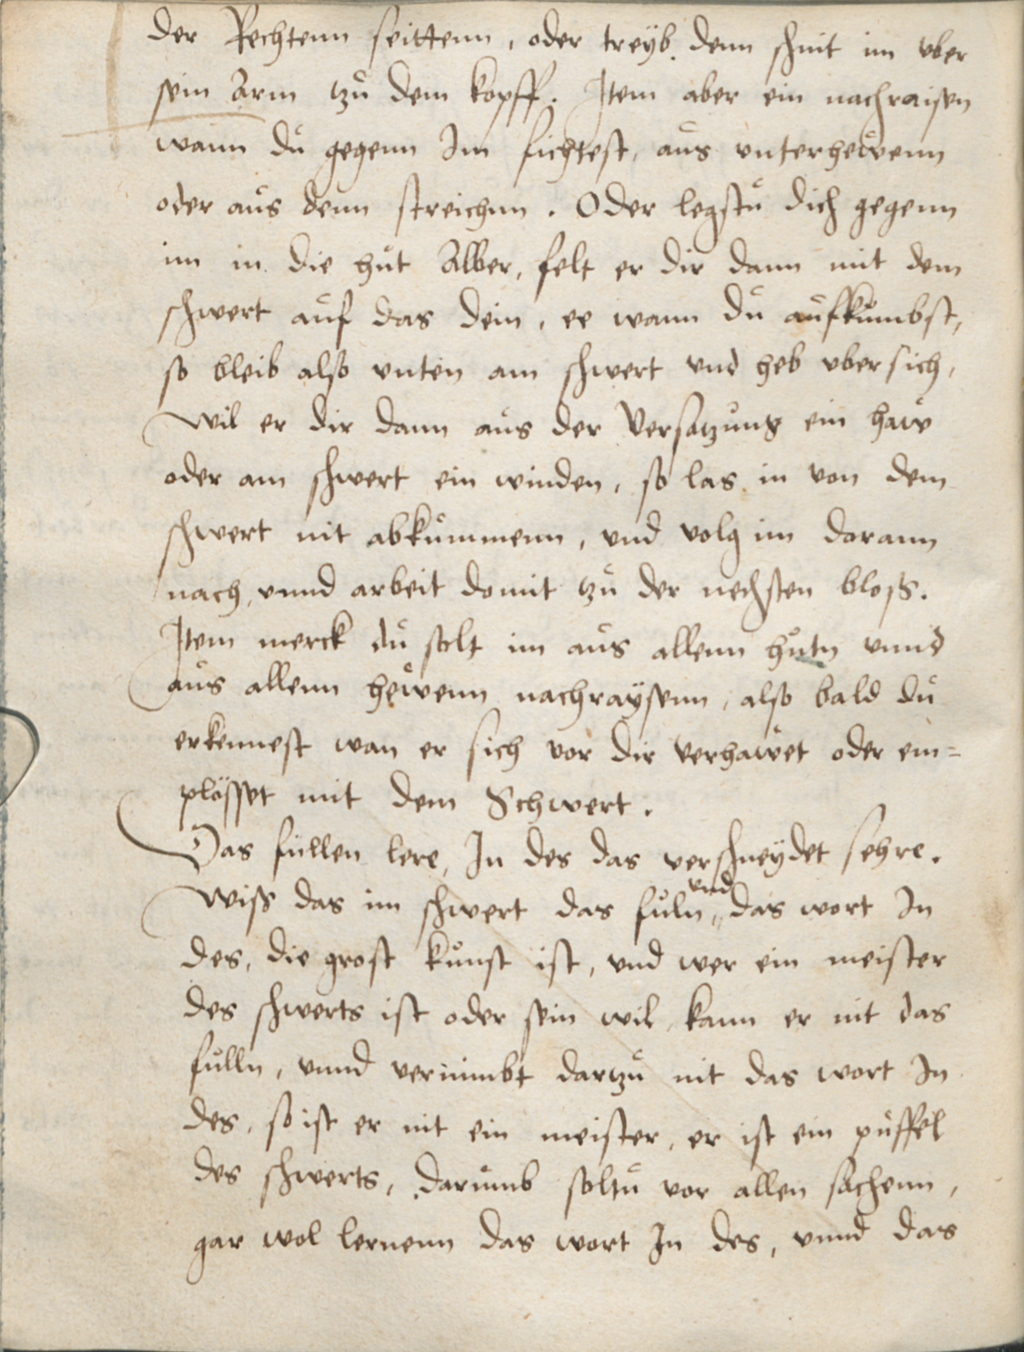 der Rechtenn seittenn, oder treyb denn schnit im vber
sein Arm tzu dem kopff. Item aber ein nachraisen
wann du gegenn Im fichtest, aus vnterhewenn
oder aus denn streichnn. Oder legstu dich gegenn
im in die hut Alber, felt er dir dann mit dem
schwert auf das dein, ee wann du aufkumbst,
so bleib also vnten am schwert vnd heb vbersich,
wil er dir dann aus der Versatzung ein haw
oder am schwert ein winden, so las in von dem
schwert nit abkummenn, vnd volg im darann
nach, vnnd arbeit domit tzu der nechsten bloß.
Item merck du solt im aus allenn hutn vnnd
aus allenn hewenn nachraysenn, also bald du
erkennest wan er sich vor dir verhawet oder em=
plösset mit dem Schwert.
Das fullen lere, In des das verschneydet sehre.
Wiß das im schwert das fuln vnd das wort In
des, die grost kunst ist, vnd wer ein meister
des schwerts ist oder sein wil, kann er nit das
fulln, vnnd vernimbt dartzu nit das wort In
des, so ist er nit ein meister, er ist ein püffel
des schwerts, darumb soltu vor allen sachenn,
gar wol lernenn das wort In des, vnnd das